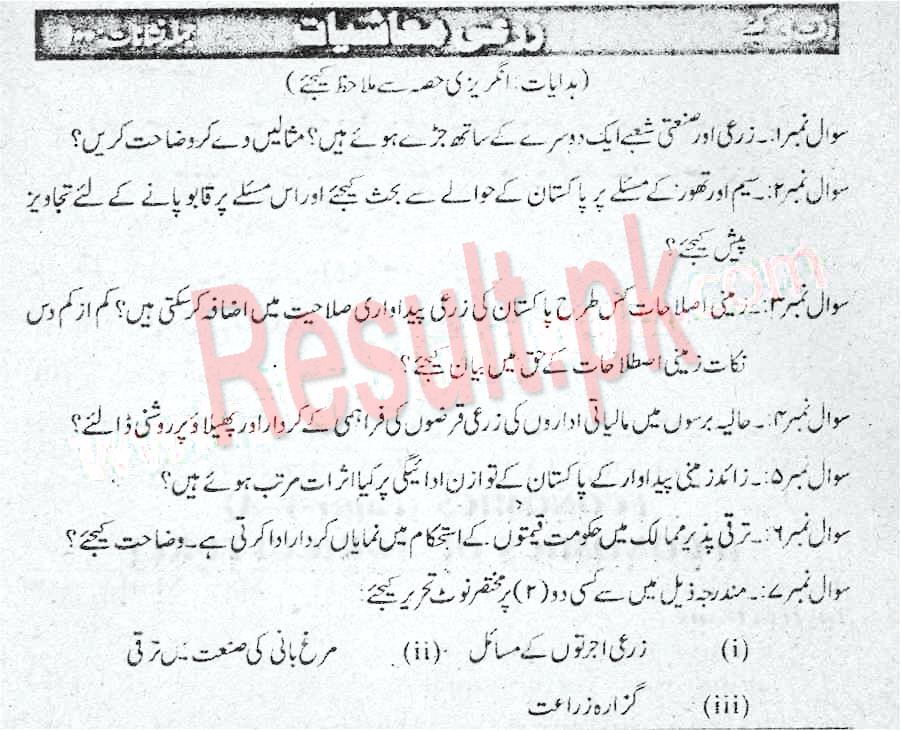 زرعی معاشیات
(ہدایات: انگریزی حصہ سے ملاحظہ کیجئے)
سوال نمبر۱:۔ زرعی اور صنعتی شعبے ایک دوسرے کے ساتھ جڑے ہوئے ہیں؟ مثالیں دے کر وضاحت کریں؟
سوال نمبر۲:۔ سیم اور تھور کے مسئلے پر پاکستان کے حوالے سے بحث کیجئے اور اس مسئلے پر قابو پانے کے لئے تجاویز
پیش کیجئے؟
سوال نمبر۳:۔ زمینی اصلاحات کس طرح پاکستان کی زرعی پیداواری صلاحیت میں اضافہ کر سکتی ہیں؟ کم از کم دس
نکات زمینی اصطلاحات کے حق میں بیان کیجئے؟
سوال نمبر۴:۔ حالیہ برسوں میں مالیاتی اداروں کی زرعی قرضوں کی فراہمی کے کردار اور پھیلاؤ پر روشنی ڈالئے؟
سوال نمبر۵:۔ زائد زمینی پیداوار کے پاکستان کے توازن ادائیگی پر کیا اثرات مرتب ہوئے ہیں؟
سوال نمبر۶:۔ ترقی پذیر ممالک میں حکومت قیمتوں کے استحکام میں نمایاں کردار ادا کرتی ہے۔ وضاحت کیجئے؟
سوال نمبر۷:۔ مندرجہ ذیل میں سے کسی دو (۲) پر مختصر نوٹ تحریر کیجئے:
(i) زرعی اجرتوں کے مسائل (ii) مرغ بانی کی صنعت میں ترقی
(iii) گزارہ زراعت
www.Result.pk.com